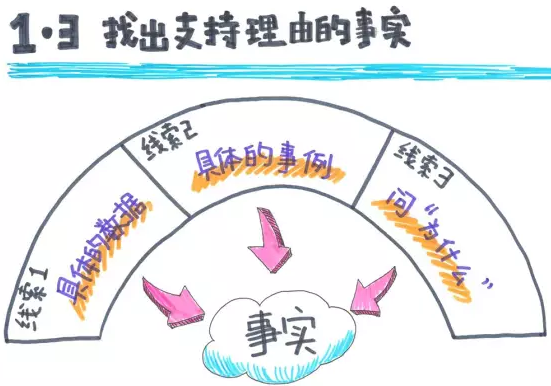 1·3 找出支持理由的事实
线索1
具体的数据
线索2
具体的事例
线索3
问“为什么”
事实